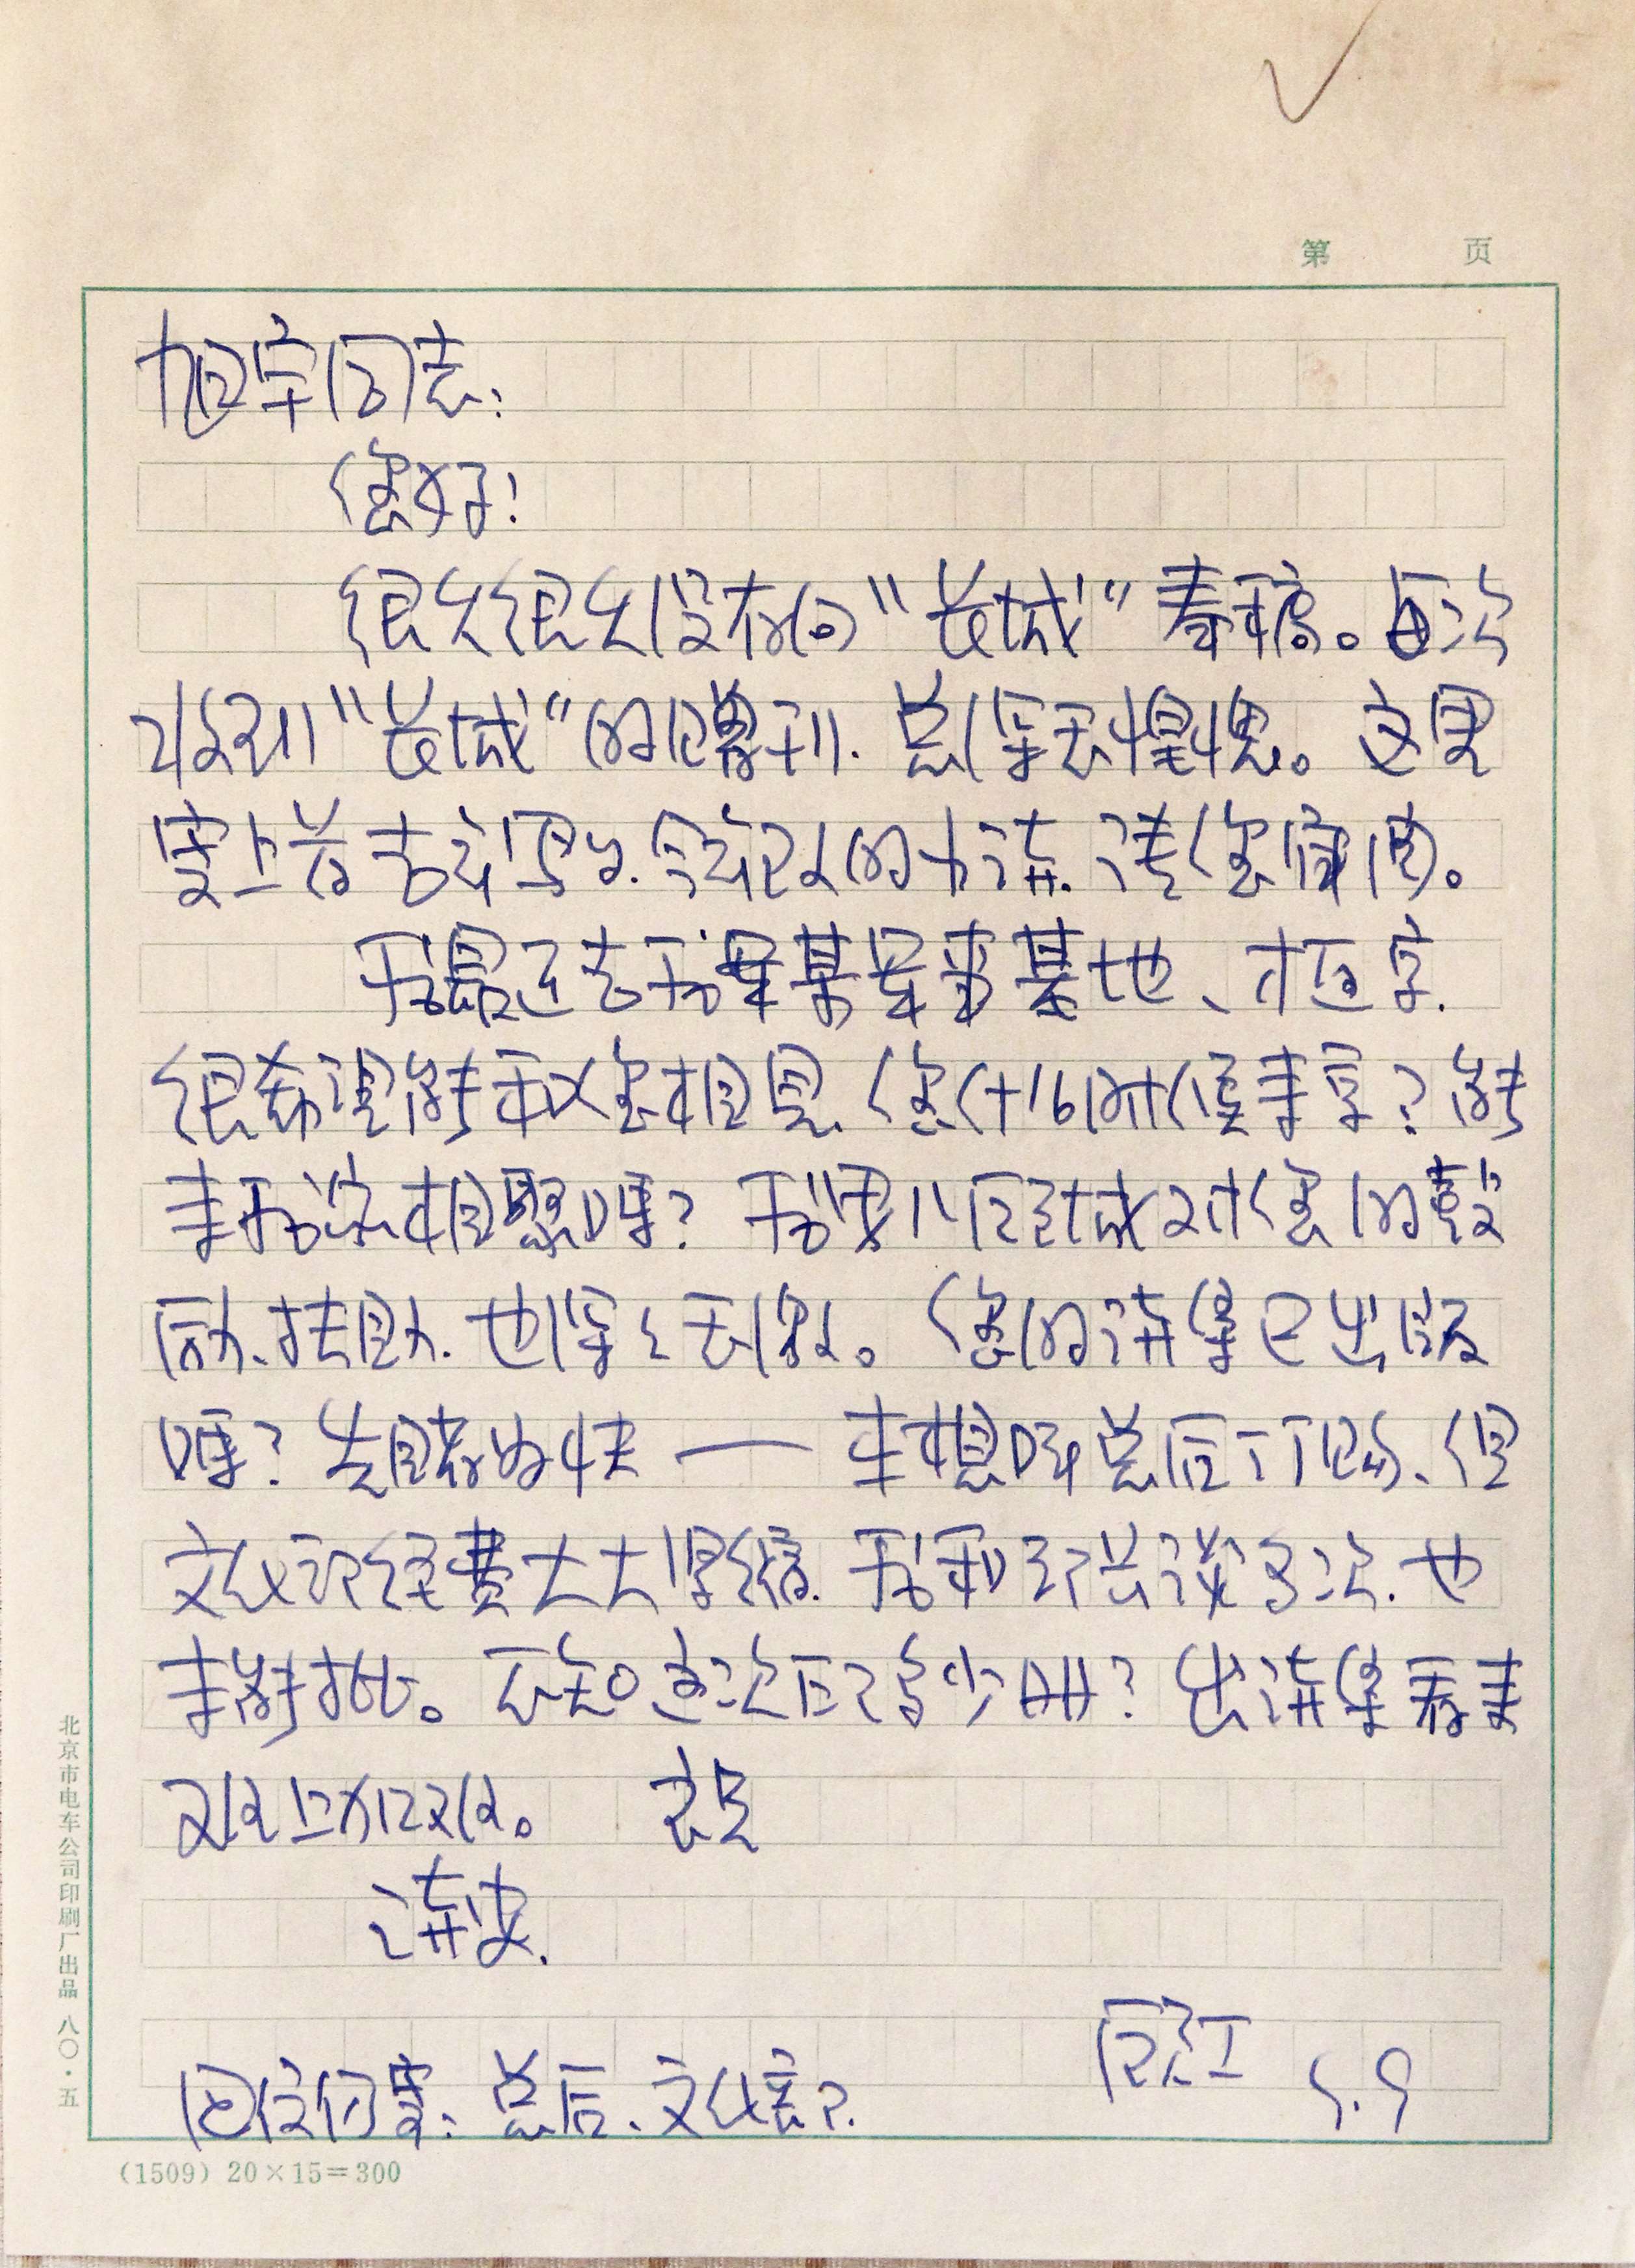 旭宇同志:
您好!
很久很久没有向“长城”奉稿。每次
收到“长城”的赠刊,总深感惶愧。这里
寄上首 的小诗,请您审阅。
我最近去我军某军事基地、 京,
很希望能和您相见,您什么时候来京?能
来我家相聚吗?我 对您的鼓
励、扶助,也深深感激。您的诗集已出版
吗?先睹为快——本想叫总后订购,但
文化部经费大大紧缩,我和 谈多次,也
未能批。不知这次印了多少册?出诗集看来
难上加难。
诗安.
5.9
回信仍寄:总后、文化部
第 页
北京市电车公司印刷厂出品 八〇·五
(1509) 20×15=300